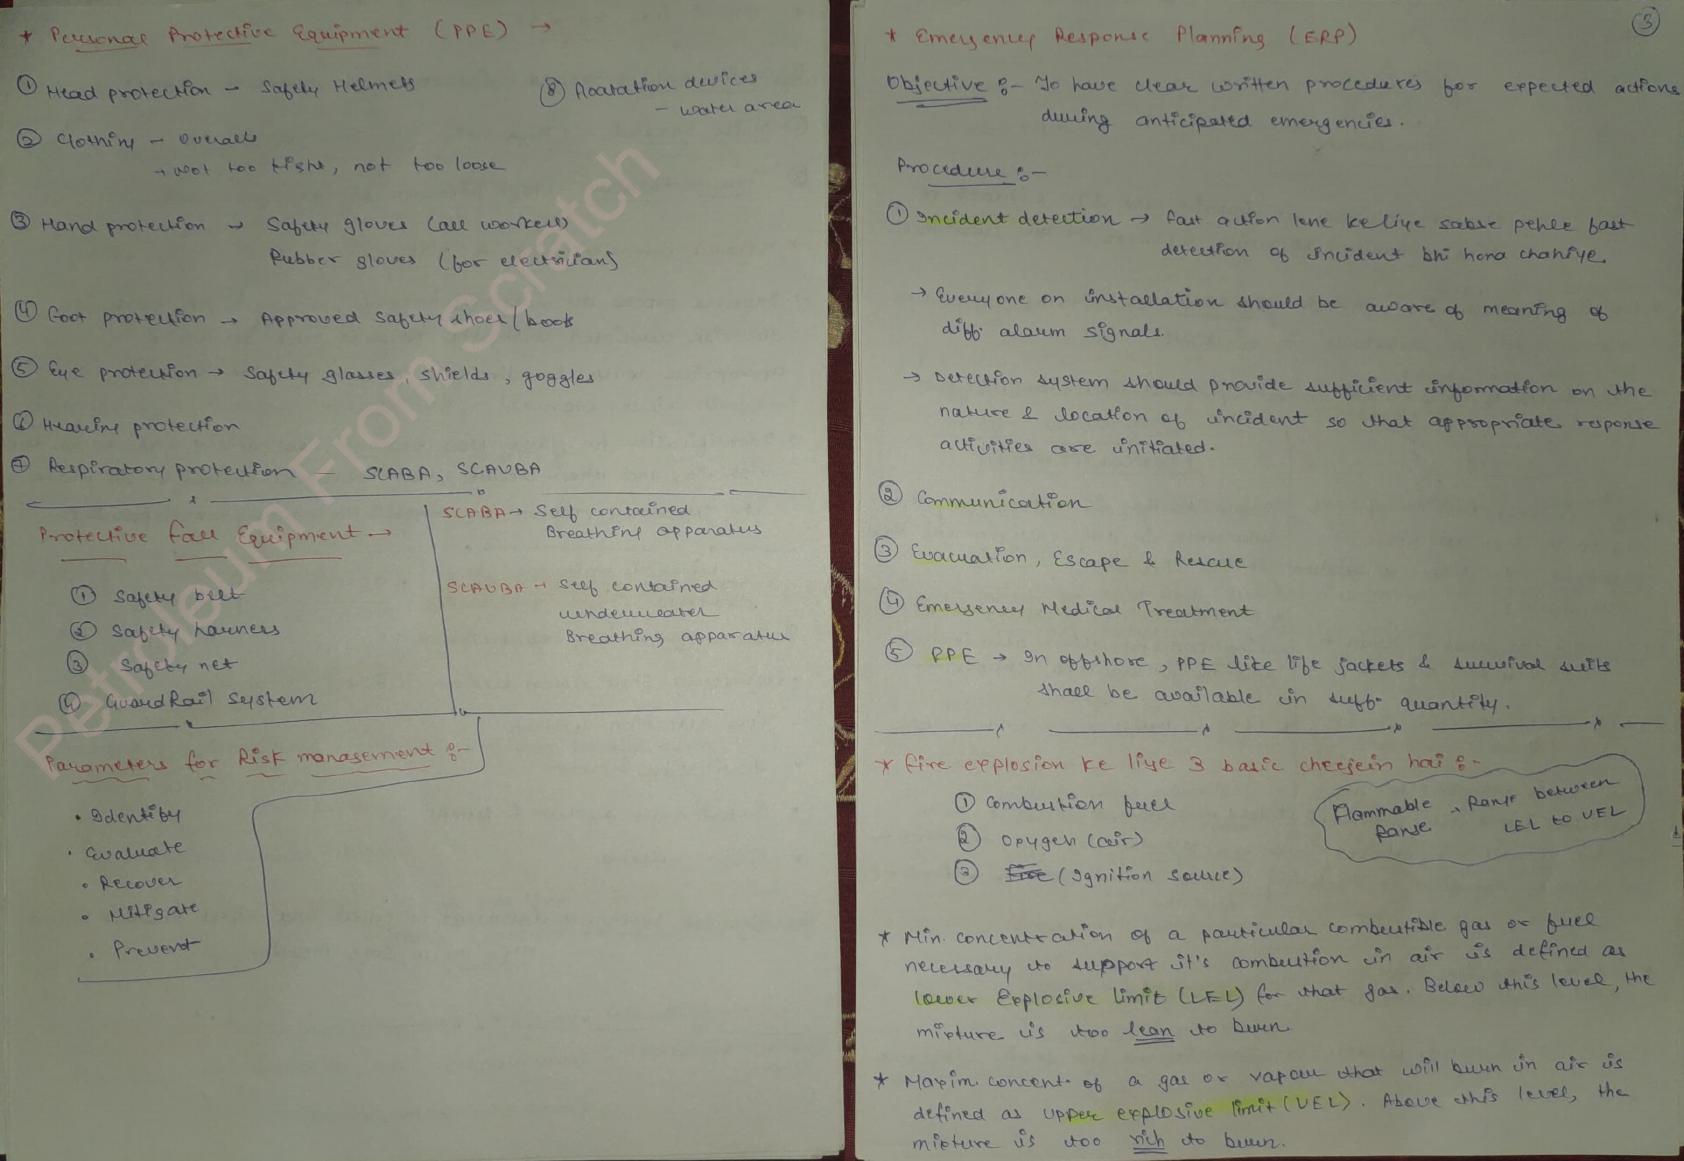 * Personal Protective Equipment (PPE) →
① Head protection - Safety Helmets
② Clothing - Overalls
→ Not too tight, not too loose
③ Hand protection → Safety gloves (all workers)
Rubber gloves (for electricians)
④ Foot protection → Approved safety shoes/boots
⑤ Eye protection → Safety glasses, shields, goggles
⑥ Hearing protection
⑦ Respiratory protection - SCABA, SCAUBA
⑧ Floatation devices
- water area
Protective Fall Equipment →
① Safety belt
② Safety harness
③ Safety net
④ GuardRail system
SCABA → Self contained
Breathing apparatus
SCAUBA → Self contained
underwater
Breathing apparatus
Parameters for Risk management :-
• Identify
• Evaluate
• Recover
• Mitigate
• Prevent
Petroleum From Scratch
③
* Emergency Response Planning (ERP)
Objective :- To have clear written procedures for expected actions
during anticipated emergencies.
Procedure :-
① Incident detection → fast action lene ke liye sabse pehle fast
detection of incident bhi hona chahiye.
→ Everyone on installation should be aware of meaning of
diff. alarm signals.
→ Detection system should provide sufficient information on the
nature & location of incident so that appropriate response
activities are initiated.
② Communication
③ Evacuation, Escape & Rescue
④ Emergency Medical Treatment
⑤ PPE → In offshore, PPE like life jackets & survival suits
shall be available in suff. quantity.
* Fire explosion ke liye 3 basic cheejein hai :-
① Combustion fuel
② Oxygen (air)
③ Fire (Ignition source)
Flammable → Range between
Range LEL to UEL
* Min. concentration of a particular combustible gas or fuel
necessary to support it's combustion in air is defined as
lower Explosive limit (LEL) for that gas. Below this level, the
mixture is too lean to burn
* Maxim. concent. of a gas or vapour that will burn in air is
defined as upper explosive limit (UEL). Above this level, the
mixture is too rich to burn.